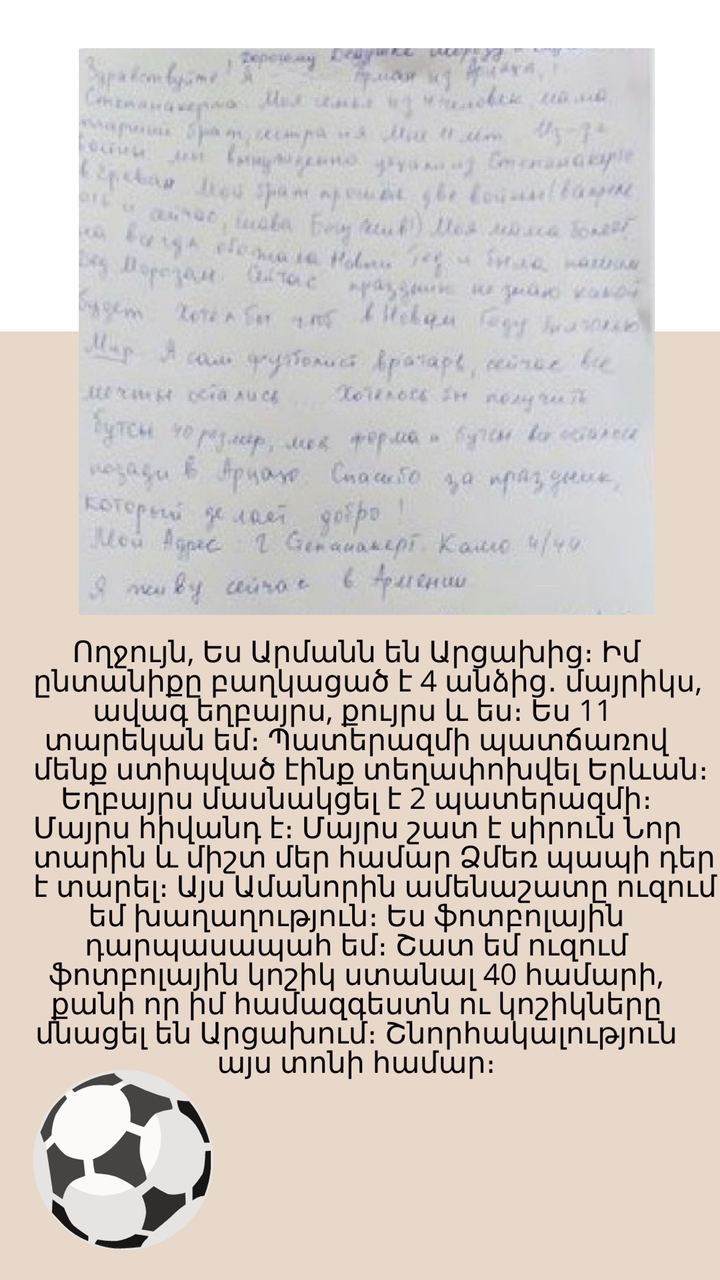 дорогому Дедушке Морозу
Здравствуйте! Я Арман из Арцаха,
Степанакерта. Моя семья из 4 человек, мама
старший брат, сестра и я. Мне 11 лет. Из-за
войны мы вынужденно уехали из Степанакерта
в Ереван. Мой брат прошел две войны (в апреле
и сейчас, слава Богу жив!) Моя мама болеет,
на всегда обожала Новый Год и была нашим
Дед Морозам. Сейчас праздник не знаю какой
будет. Хотел бы чтоб в Новом Году был только
Мир. Я сам футболист вратарь, сейчас все
мечты остались ... Хотелось бы получить
бутсы 40 размер, моя форма и бутсы все остались
позади в Арцахе. Спасибо за праздник,
который делает добро!
Мой Адрес: г Степанакерт. Камо 4/44
Я живу сейчас в Армении
Ողջույն, Ես Արմանն են Արցախից։ Իմ
ընտանիքը բաղկացած է 4 անձից. մայրիկս,
ավագ եղբայրս, քույրս և ես։ Ես 11
տարեկան եմ։ Պատերազմի պատճառով
մենք ստիպված էինք տեղափոխվել Երևան։
Եղբայրս մասնակցել է 2 պատերազմի։
Մայրս հիվանդ է։ Մայրս շատ է սիրուն Նոր
տարին և միշտ մեր համար Ձմեռ պապի դեր
է տարել։ Այս Ամանորին ամենաշատը ուզում
եմ խաղաղություն։ Ես ֆոտբոլային
դարպասապահ եմ։ Շատ եմ ուզում
ֆոտբոլային կոշիկ ստանալ 40 համարի,
քանի որ իմ համազգեստն ու կոշիկները
մնացել են Արցախում։ Շնորհակալություն
այս տոնի համար։